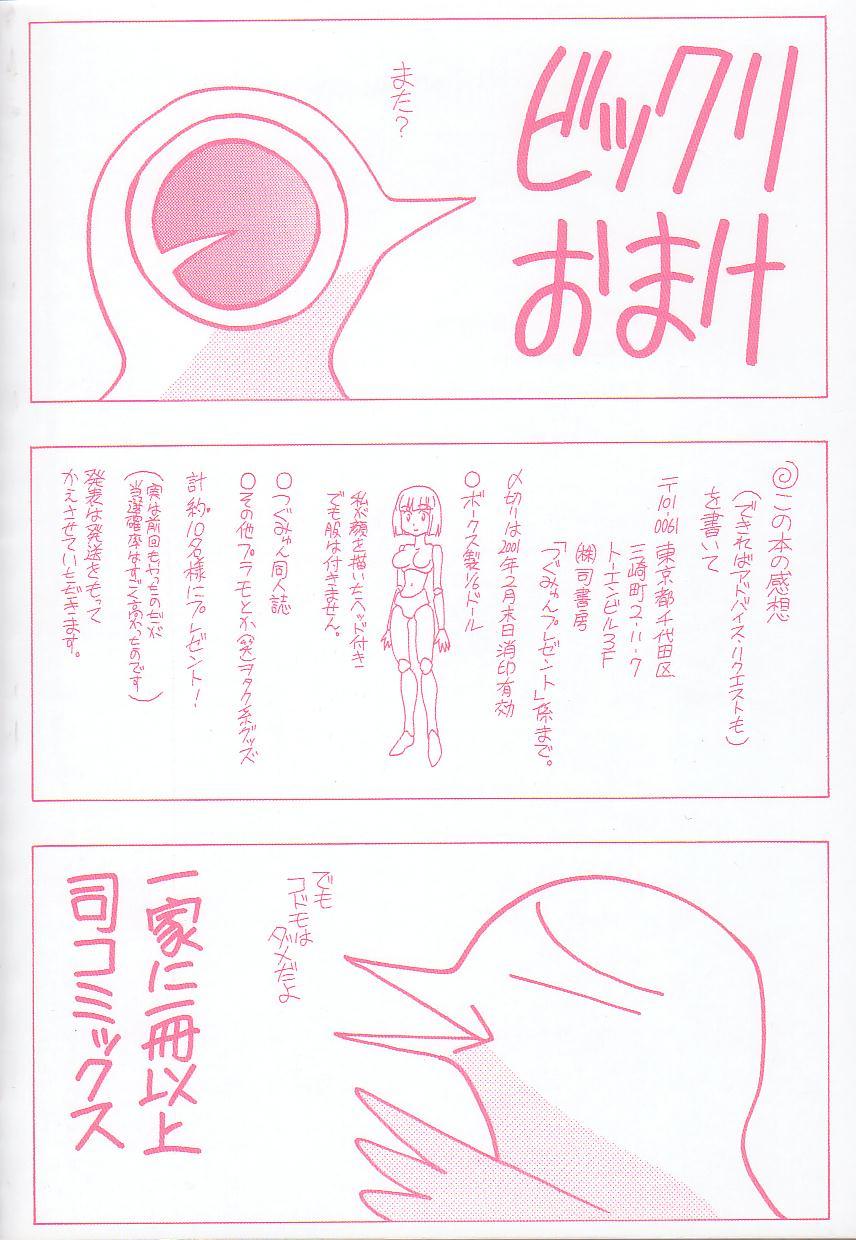 ビックリ
おまけ
また？
この本の感想
（できればアドバイス・リクエストも）
を書いて
〒101-0061 東京都千代田区
三崎町2-11-7
トーエンビル3F
㈱司書房
「つぐみゅんプレゼント」係まで。
〆切りは2001年2月末日消印有効
○ボークス製1/6ドール
私が顔を描いたヘッド付き
でも服は付きません。
○つぐみゅん同人誌
○その他プラモとか（笑）ヲタク系グッズ
計約10名様にプレゼント！
（実は前回もやったのだが
当選確率はすごく高かったのです）
発表は発送をもって
かえさせていただきます。
でも
コドモは
ダメだよ
一家に一冊以上
司コミックス